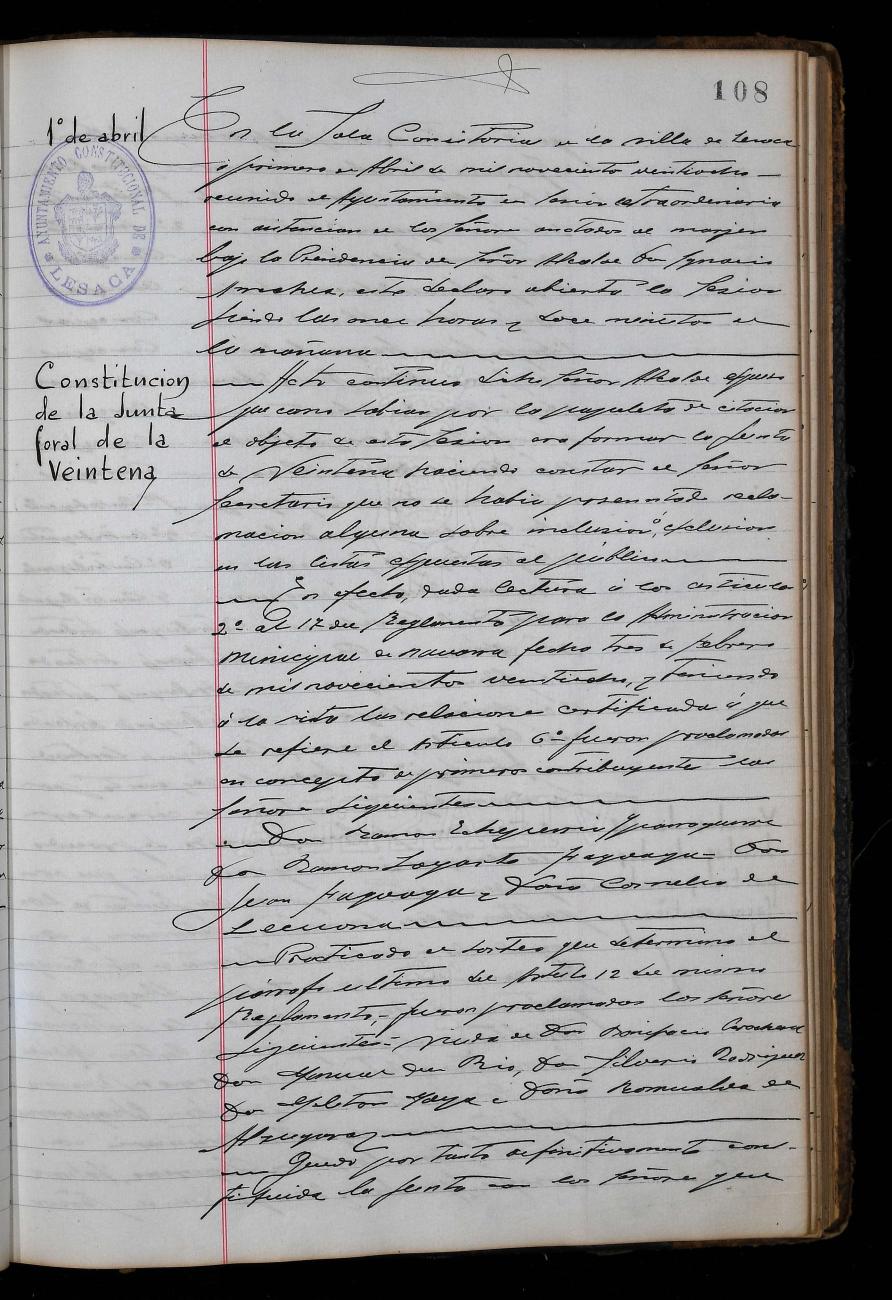 108
1º de abril
AYUNTAMIENTO CONSTITUCIONAL DE
LESACA
En la Sala Consistorial de la villa de Lesaca
á primero de Abril de mil novecientos veintiocho
reunido el Ayuntamiento en sesion extraordinaria
con asistencia de los Señores anotados al margen
bajo la Presidencia del Señor Alcalde Don Ignacio
Arrechea, este declaró abierta la Sesion
siendo las once horas y doce minutos de
la mañana
Constitucion
de la Junta
foral de la
Veintena
Acto continuo dicho Señor Alcalde expuso
que como sabian por la papeleta de citacion
el objeto de esta Sesion era formar la Junta
de Veintena haciendo constar el Señor
Secretario que no se habia presentado recla-
macion alguna sobre inclusion ó exclusion
en las listas expuestas al público
En efecto, dada lectura á los articulos
2º al 17 del Reglamento para la Administracion
Municipal de Navarra fecha tres de Febrero
de mil novecientos veintiocho, y teniendo
á la vista las relaciones certificadas á que
se refiere el Articulo 6º fueron proclamados
en concepto de primeros contribuyentes los
Señores siguientes
Don Ramon Echeverria Yparraguirre
Don Ramon Loyarte Fagoaga = Don
Juan Fagoaga y Doña Cornelia de
Lecuona
Practicado el sorteo que determina el
párrafo ultimo del Articulo 12 del mismo
Reglamento, fueron proclamados los Señores
siguientes = Viuda de Don Bonifacio
Don Manuel del Rio, Don Silverio Rodriguez
Don Meliton Maya é Doña Romualda de
Alzugaray
Quedó por tanto definitivamente cons-
tituida la Junta con los Señores que